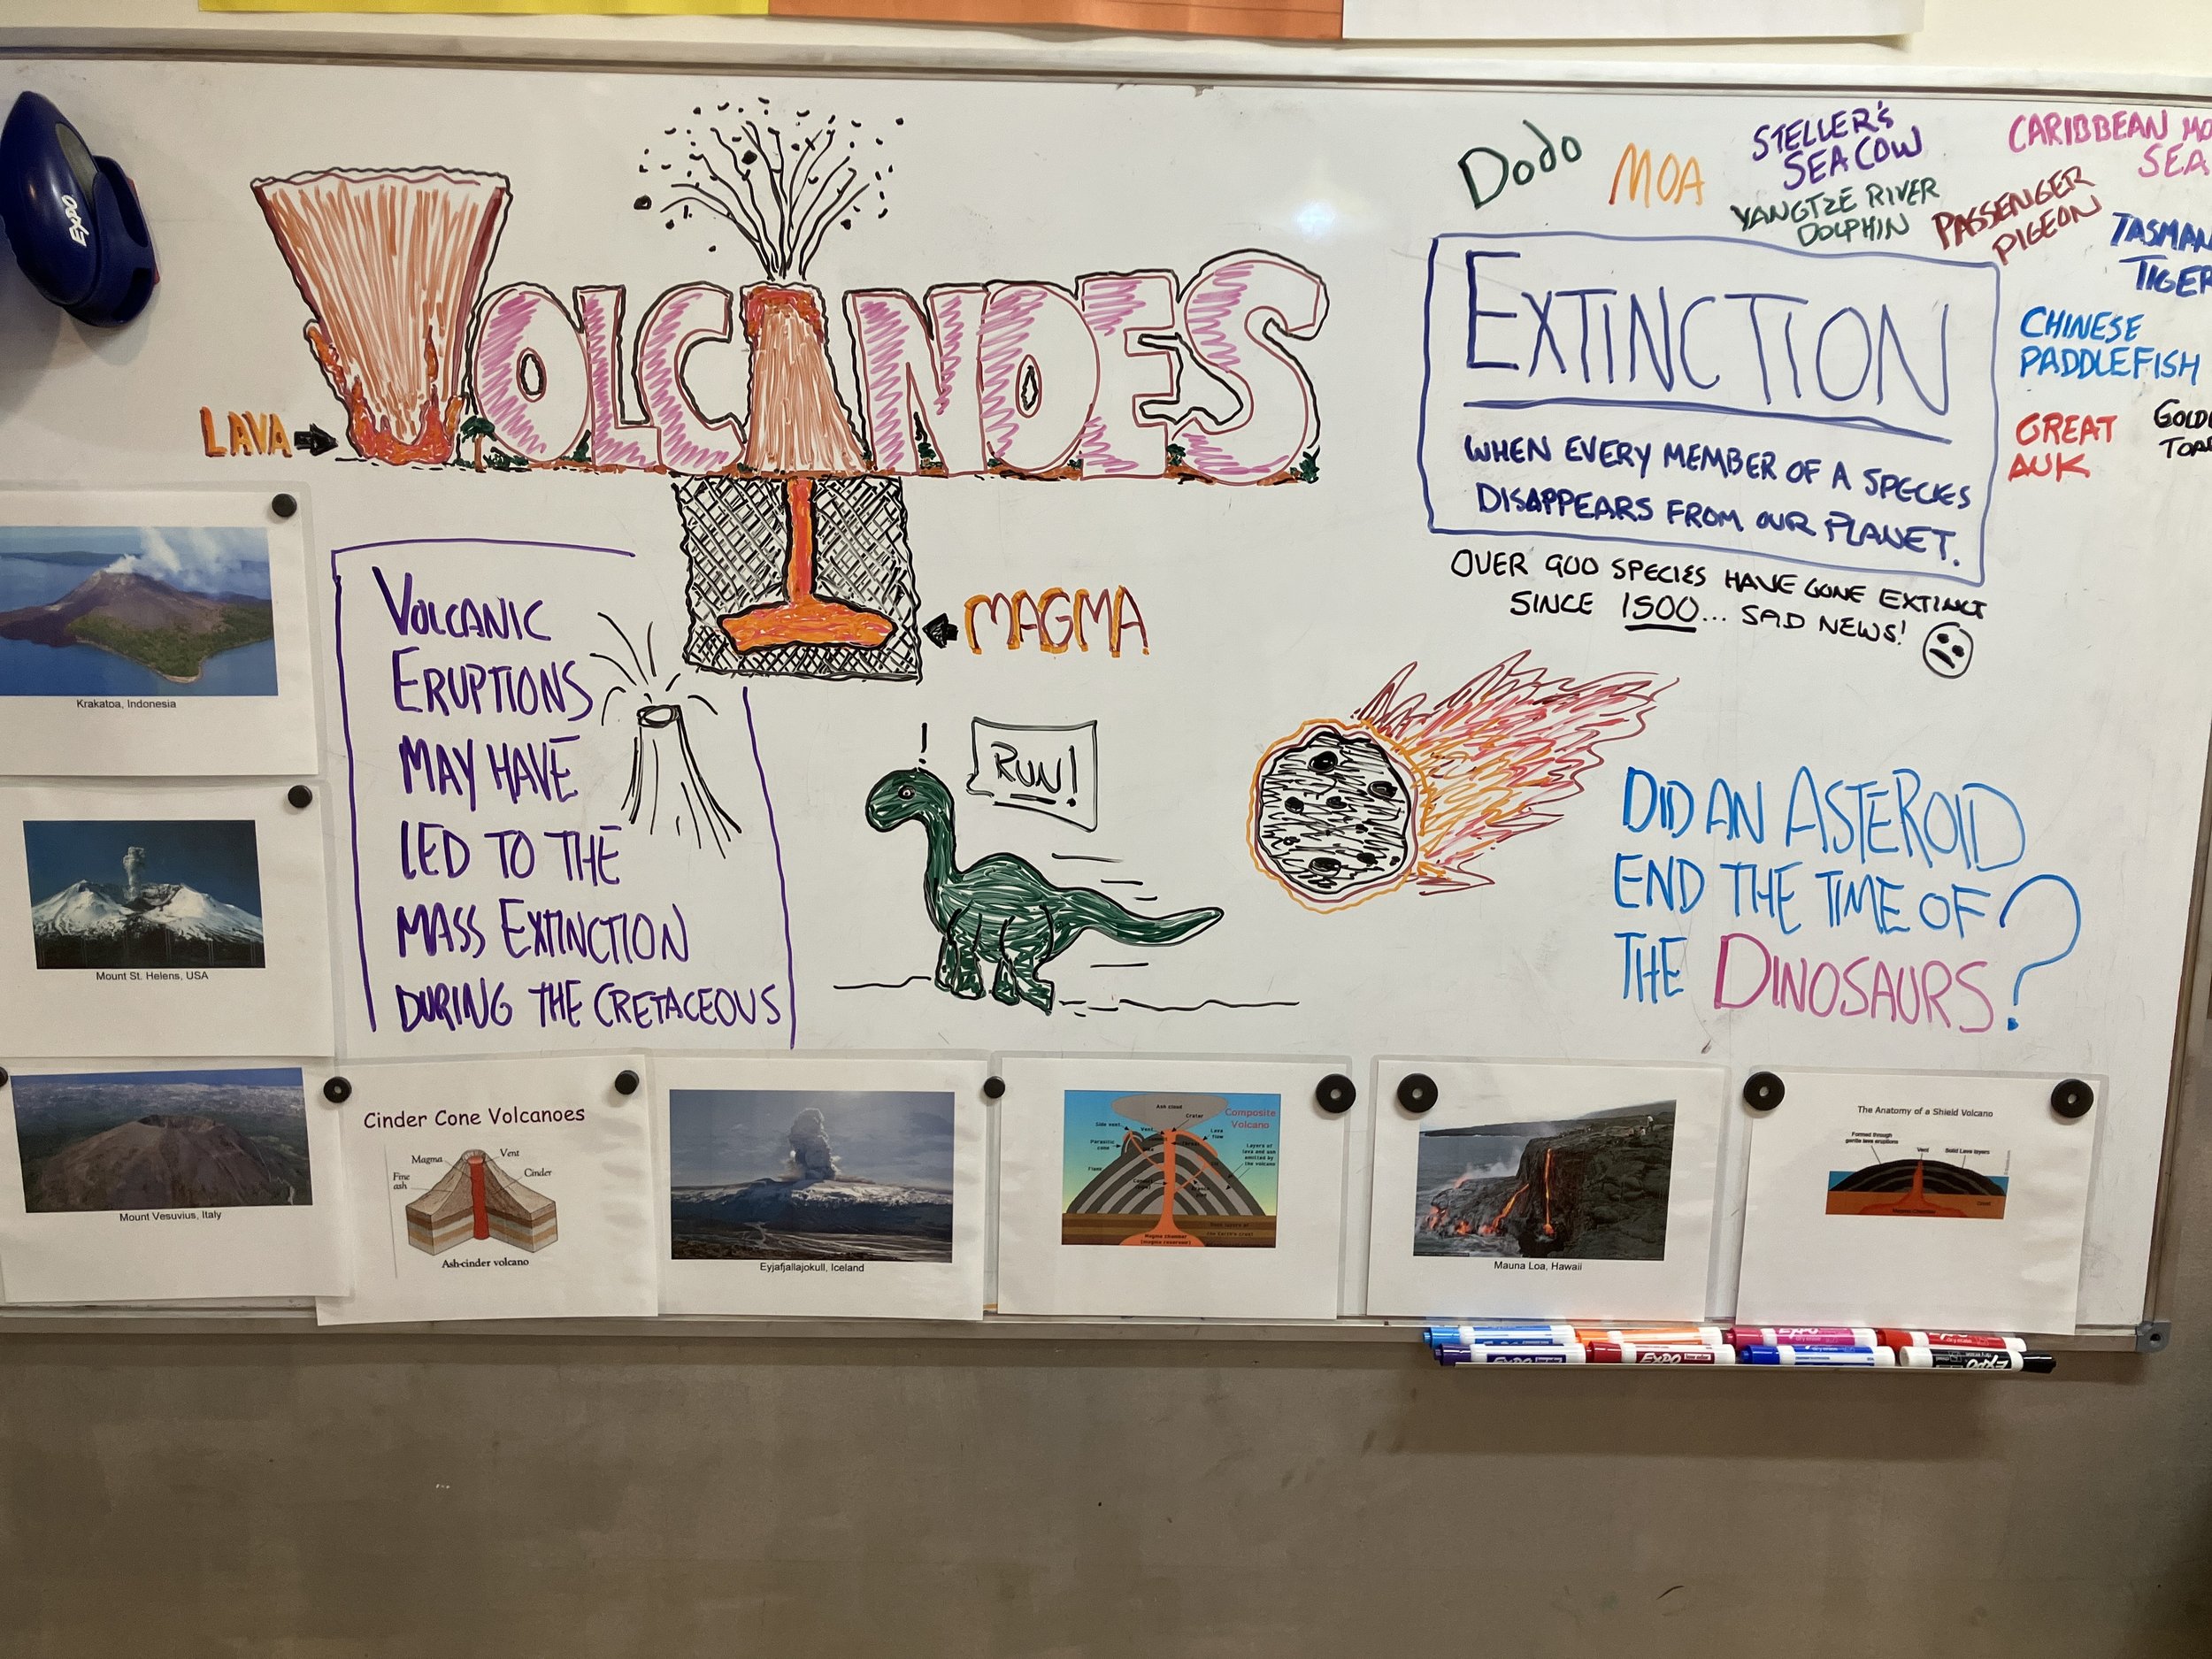 EXPO
VOLCANOES
LAVA
MAGMA
VOLCANIC
ERUPTIONS
MAY HAVE
LED TO THE
MASS EXTINCTION
DURING THE CRETACEOUS
!
RUN!
Dodo
MOA
STELLER'S
SEA COW
YANGTZE RIVER
DOLPHIN
PASSENGER
PIGEON
CARIBBEAN MO
SEA
TASMAN
TIGER
CHINESE
PADDLEFISH
GREAT
AUK
GOLD
TOA
EXTINCTION
WHEN EVERY MEMBER OF A SPECIES
DISAPPEARS FROM OUR PLANET.
OVER 900 SPECIES HAVE GONE EXTINCT
SINCE 1500... SAD NEWS!
DID AN ASTEROID
END THE TIME OF
THE DINOSAURS?
Krakatoa, Indonesia
Mount St. Helens, USA
Mount Vesuvius, Italy
Cinder Cone Volcanoes
Magma
Vent
Fine
ash
Cinder
Ash-cinder volcano
Eyjafjallajokull, Iceland
Composite
Volcano
Ash cloud
Crater
Side vent
Vent
Lava
flow
Parasitic
cone
Layers of
lava and ash
emitted by
the volcano
Magma chamber
(magma reservoir)
Mauna Loa, Hawaii
The Anatomy of a Shield Volcano
Formed through
gentle lava eruptions
Vent
Solid Lava layers
Magma Chamber
EXPO
EXPO
EXPO
EXPO